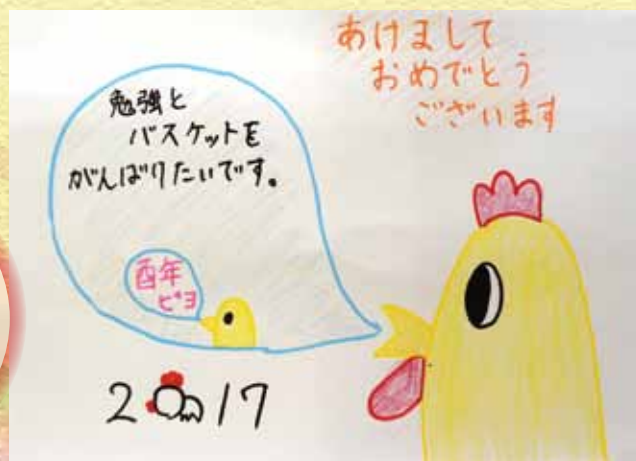 あけまして
おめでとう
ございます
勉強と
バスケットを
がんばりたいです。
酉年
ピヨ
2017